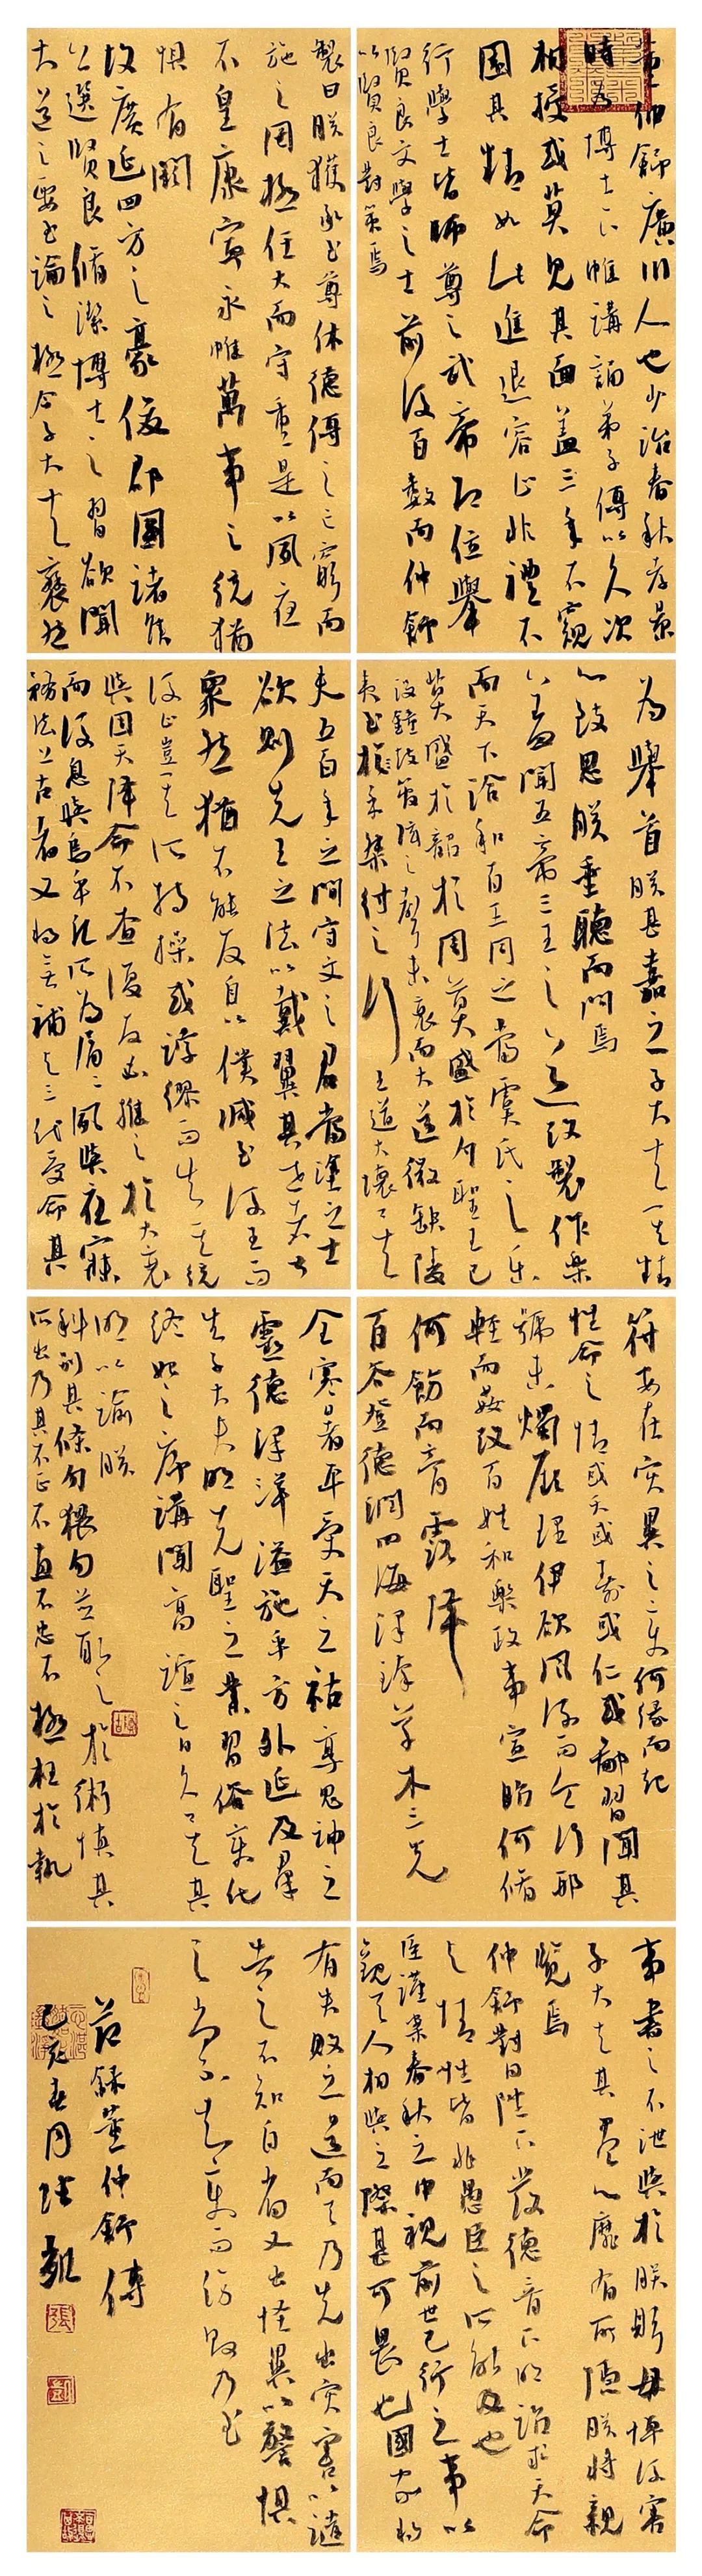 董仲舒廣川人也少治春秋孝景
時為博士下帷講誦弟子傳以久次
相授或莫見其面蓋三年不窺
園其精如此進退容止非禮不
行學士皆師尊之武帝即位舉
賢良文學之士前後百數而仲舒
以賢良對策焉
製曰朕獲承至尊休德傳之亡窮而
施之罔極任大而守重是以夙夜
不皇康寧永惟萬事之統猶
懼有闕
故廣延四方之豪俊郡國諸侯
公選賢良脩潔博士之習欲聞
大道之要至論之極今子大夫褎然
為舉首朕甚嘉之子大夫其精
心致思朕垂聽而問焉
蓋聞五帝三王之道改製作樂
而天下洽和百王同之當虞氏之樂
莫盛於韶於周莫盛於勺聖王已
沒鐘鼓筦弦之聲未衰而大道微缺陵
夷至於桀紂之行王道大壞矣
夫五百年之間守文之君當塗之士
欲則先王之法以戴翼其世者甚
眾然猶不能反日以僕滅至後王而
後止豈其所持操或誖繆而失其統
與固天降命不查復反必推之於大衰
而後息與烏乎凡所為屑屑夙興夜寐
務法上古者又將無補與三代受命其
符安在災異之變何緣而起
性命之情或夭或壽或仁或鄙習聞其
號未燭厥理伊欲風流而令行刑
輕而姦改百姓和樂政事宣昭何脩
何飭而膏露降
百谷登德潤四海澤臻草木三光
全寒暑平受天之祜享鬼神之
靈德澤洋溢施乎方外延及群
生子大夫明先聖之業習俗變化
終始之序講聞高誼之日久矣其
明以諭朕
科別其條勿猥勿並取之於術慎其
所出乃其不正不直不忠不極枉於執
事書之不泄興於朕躬毋悼後害
子大夫其盡心靡有所隱朕將親
覽焉
仲舒對曰陛下發德音下明詔求天命
與情性皆非愚臣之所能及也
臣謹案春秋之中視前世已行之事以
觀天人相與之際甚可畏也國家將
有失敗之道而天乃先出災害以譴
告之不知自省又出怪異以警懼
之尚不知變而傷敗乃至
節錄董仲舒傳
己亥春月張凱